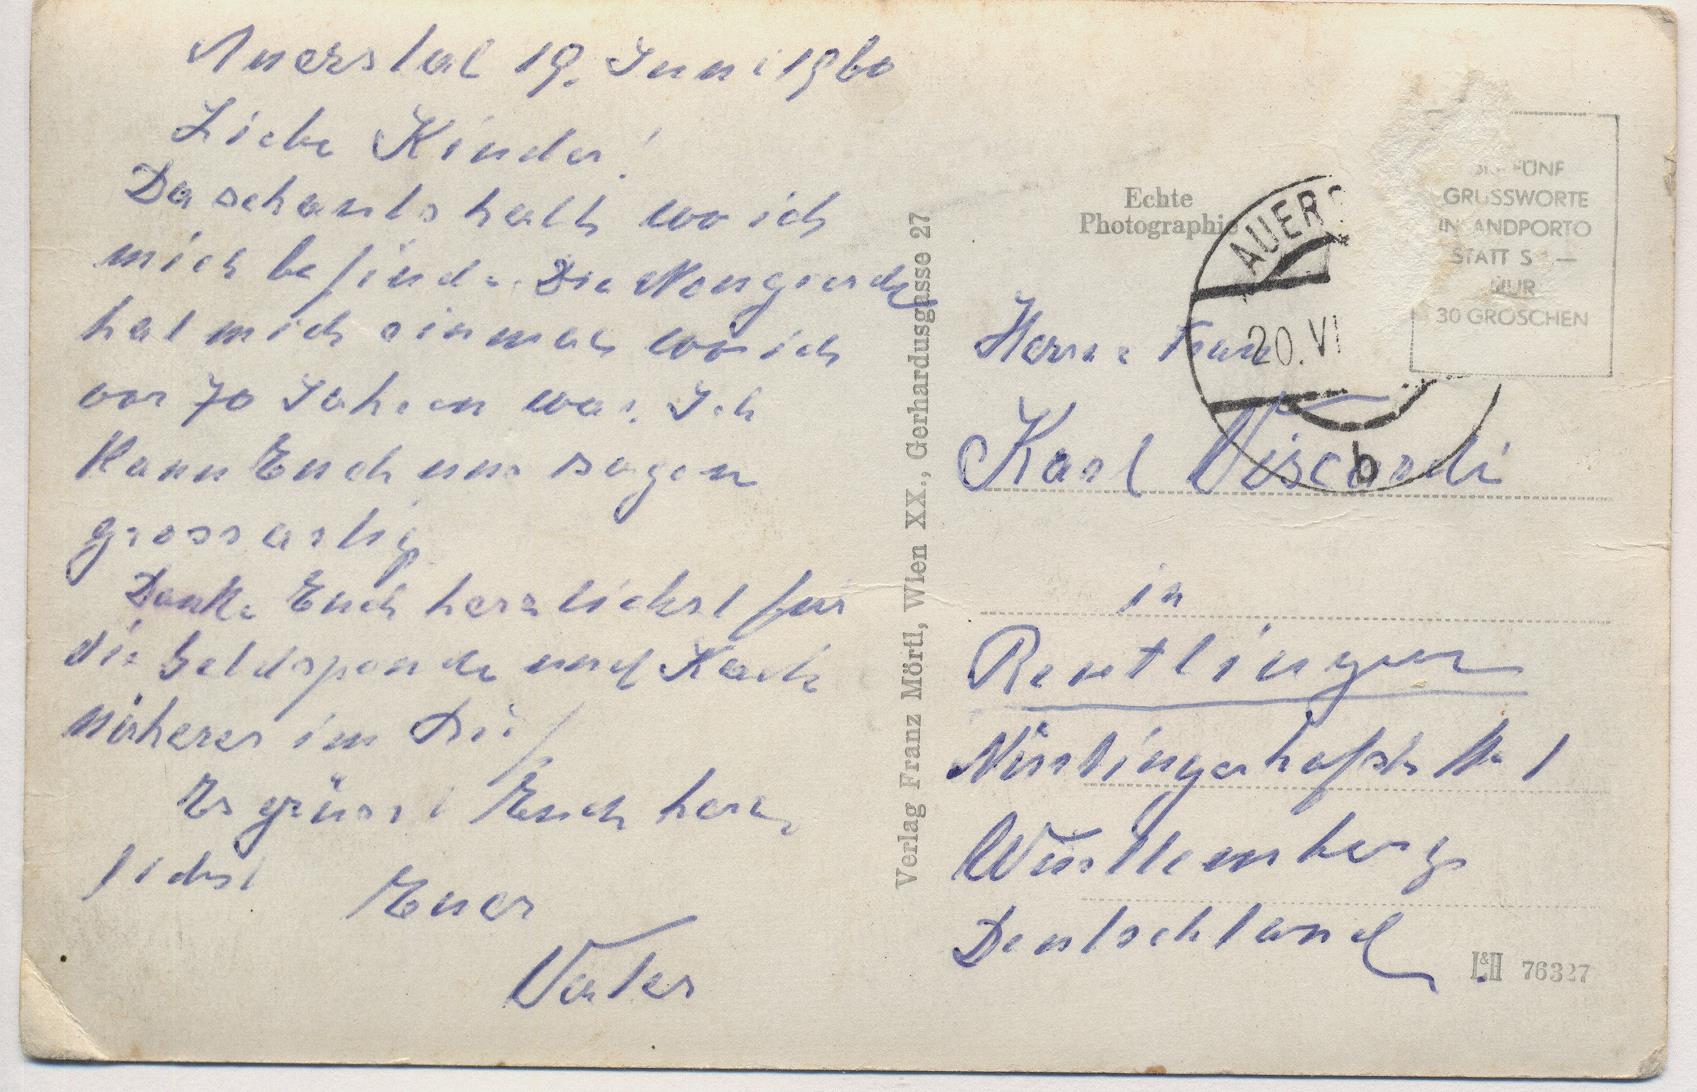 Auerstal 19. Juni 1960
Liebe Kinder!
Da schauts halt wo ich
mich befinde. Die Neugierde
hat mich einmal wo ich
vor 70 Jahren war. Ich
kann Euch nur sagen
grossartig
Danke Euch herzlichst für
die Geldspende und Karte
näheres im Brief
Es grüsst Euch herz
lichst Euer
Vater
Verlag Franz Mörtl, Wien XX., Gerhardusgasse 27
Echte
Photographie
AUERS
20. VI
b
FÜNF
GRUSSWORTE
IN LANDPORTO
STATT S 1—
NUR
30 GROSCHEN
Herrn Frau
Karl Viscardi
in
Reutlingen
Nürtingerhofstr. Nr 1
Württemberg
Deutschland
L&H 76327